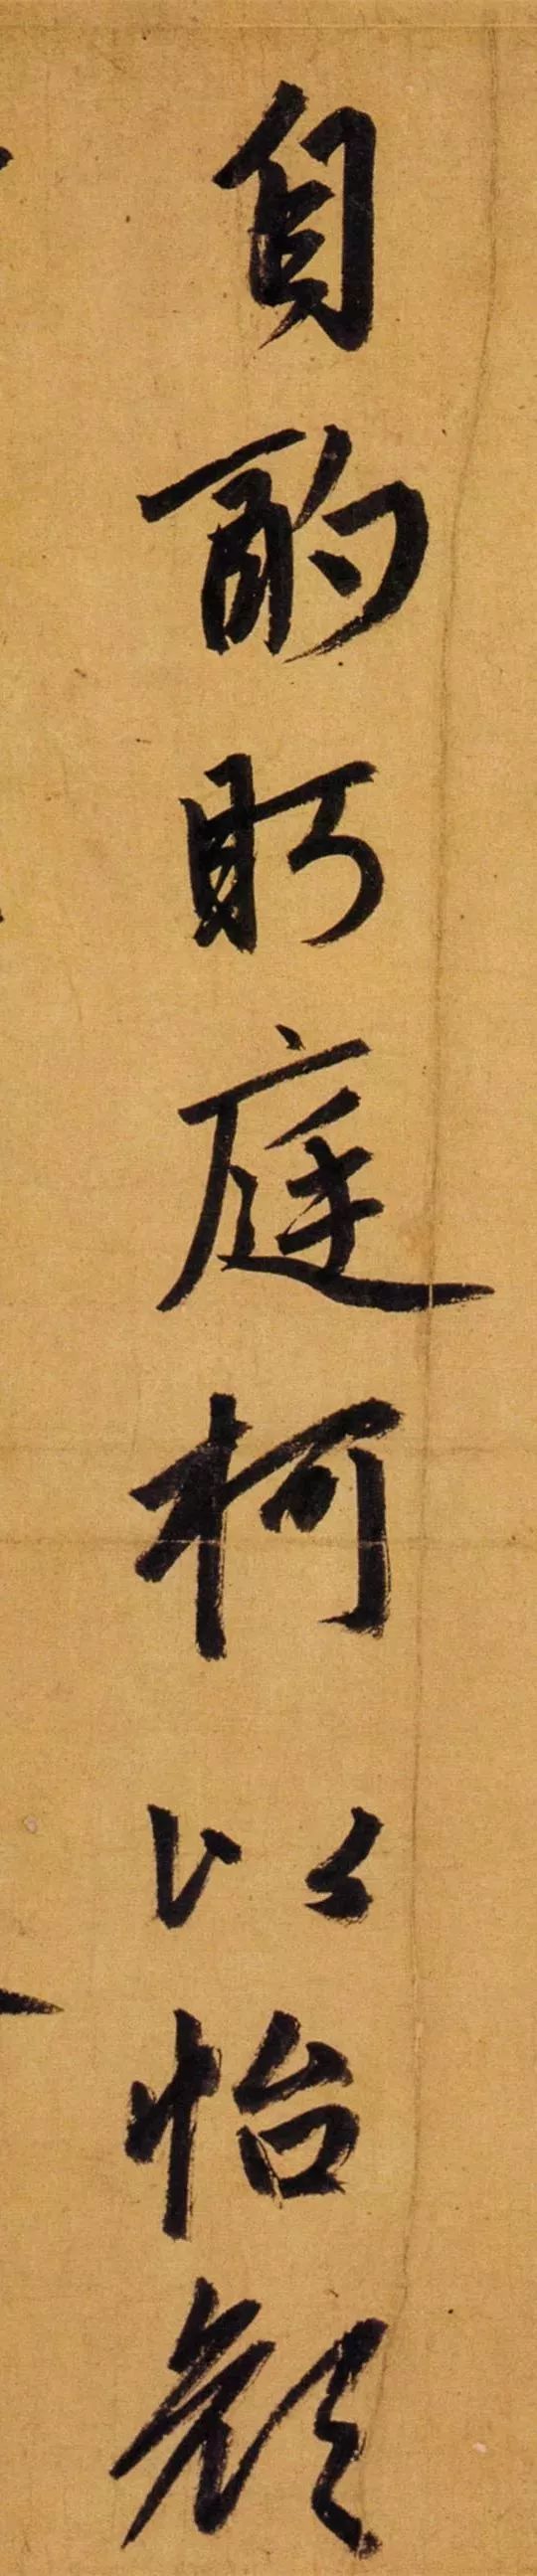 自酌眄庭柯以怡顏